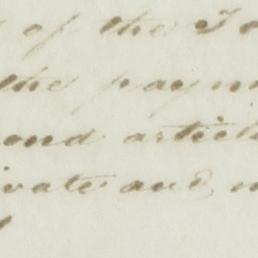 of the
the paym
ond articl
ivate and